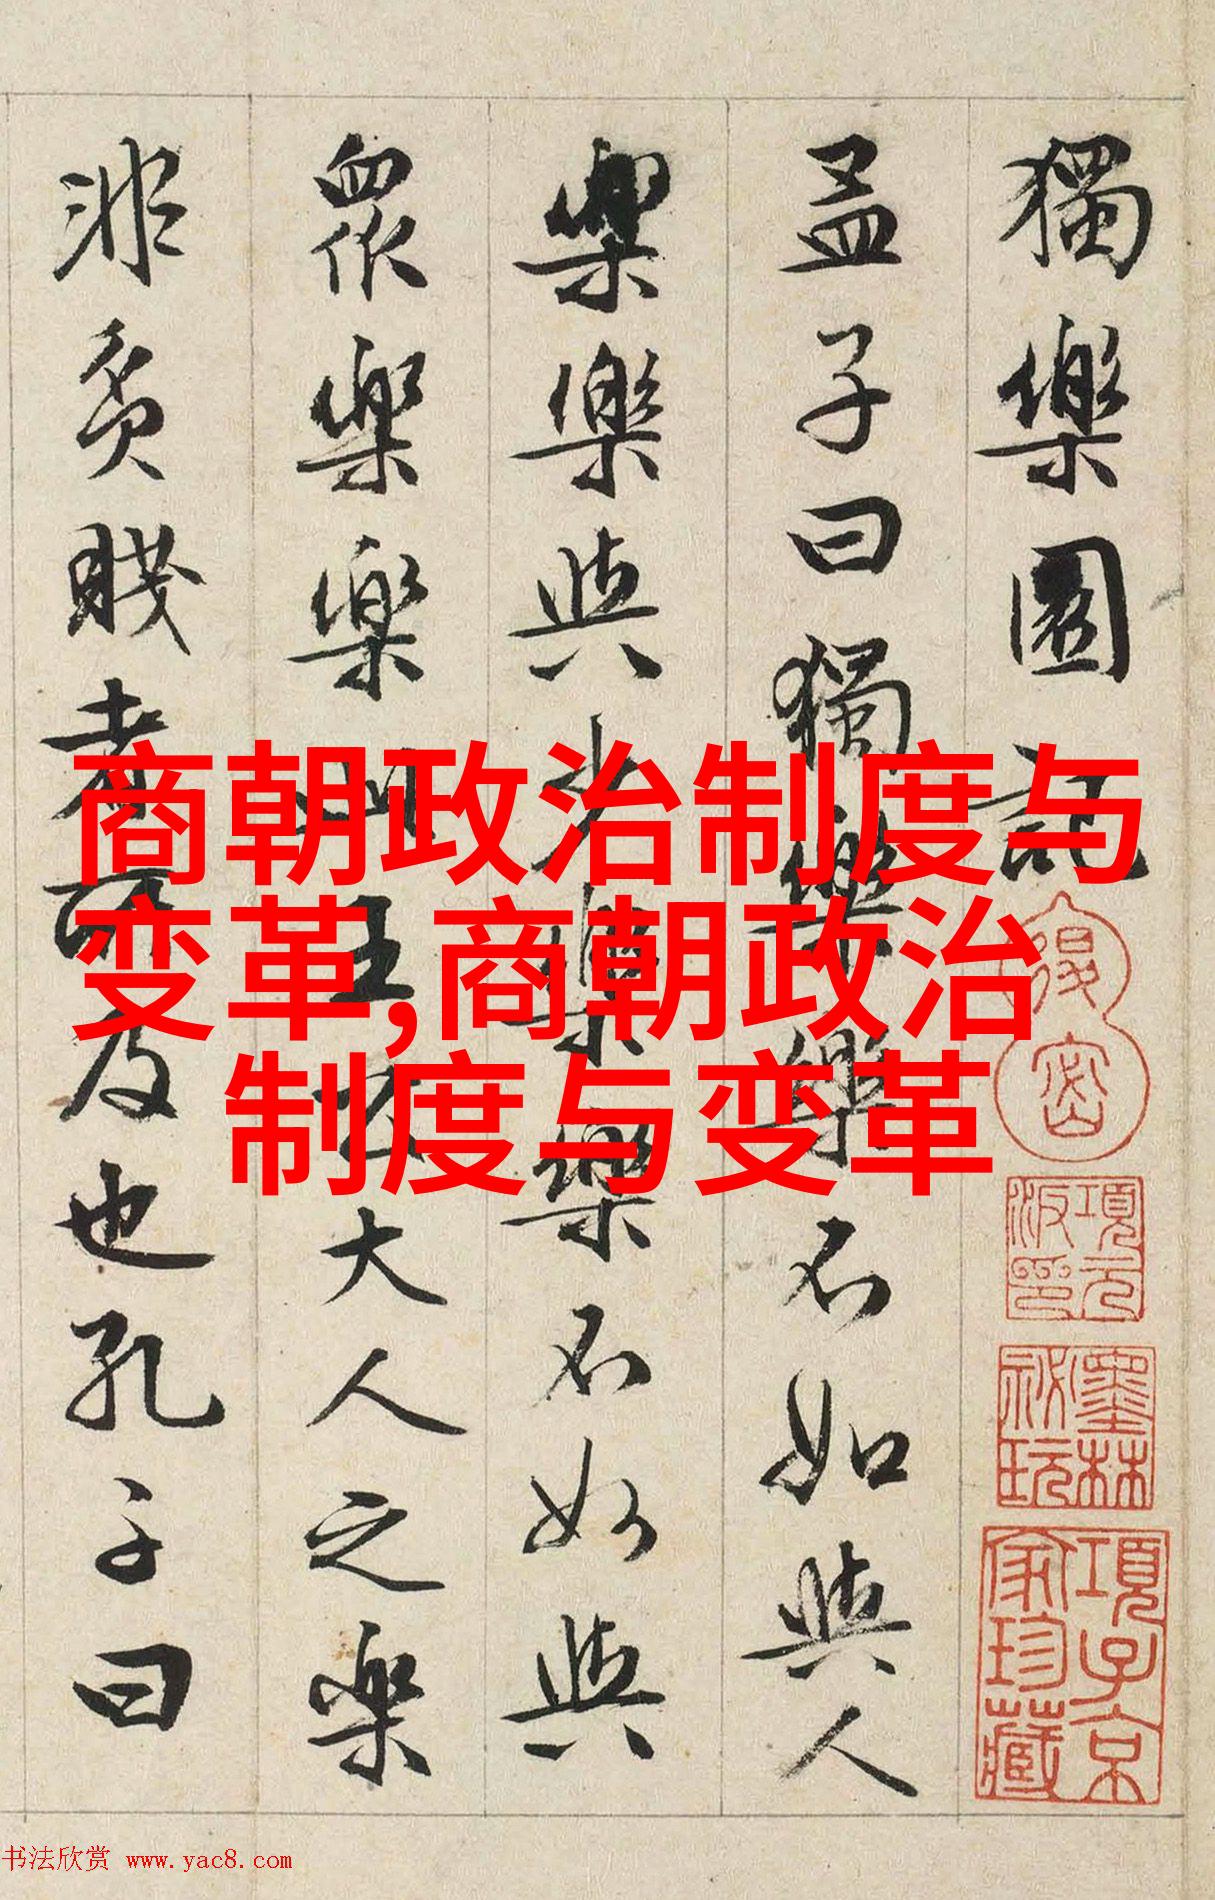 獨樂園記
孟子曰獨樂樂不如與人
樂樂與少樂樂不如與
衆樂樂此王公大人之樂
非貧賤者所及也孔子曰
商朝政治制度与
变革,商朝政治
制度与变革
項元汴印
墨林祕玩
項子京家珍藏
书法欣赏 www.yac8.com